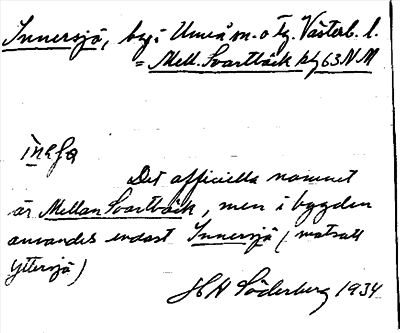 Innersjö, by i Umeå m. o tg. Västerb. l.
= Mell. Svartbäck kbl 63 N M
Det officiella namnet
är Mellan Svartbäck, men i bygden
användes endast Innersjö (motsatt
Yttersjö)
J H Söderberg 1934